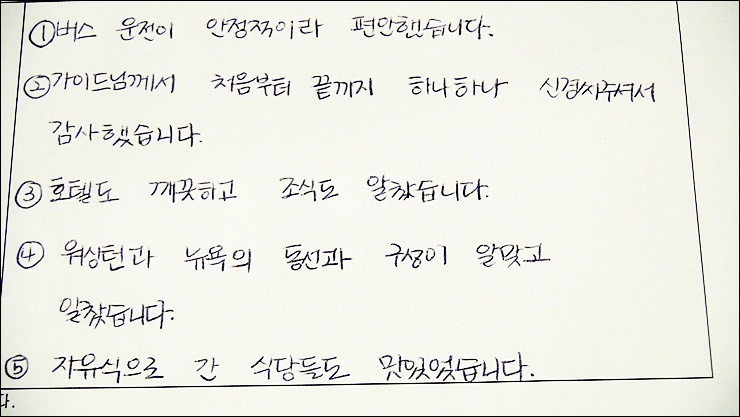 ①버스 운전이 안정적이라 편안했습니다.
②가이드님께서 처음부터 끝까지 하나하나 신경써주셔서
감사했습니다.
③호텔도 깨끗하고 조식도 알찼습니다.
④ 워싱턴과 뉴욕의 동선과 구성이 알맞고
알찼습니다.
⑤ 자유식으로 간 식당들도 맛있었습니다.
다.